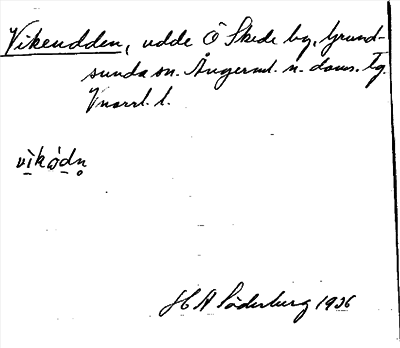 Vikendden, udde Ö Skede by, Grund-
sunda sn. Ångerml. n. doms. Tg.
Vnorrl. l.
vikódn
H A Söderburg 1936